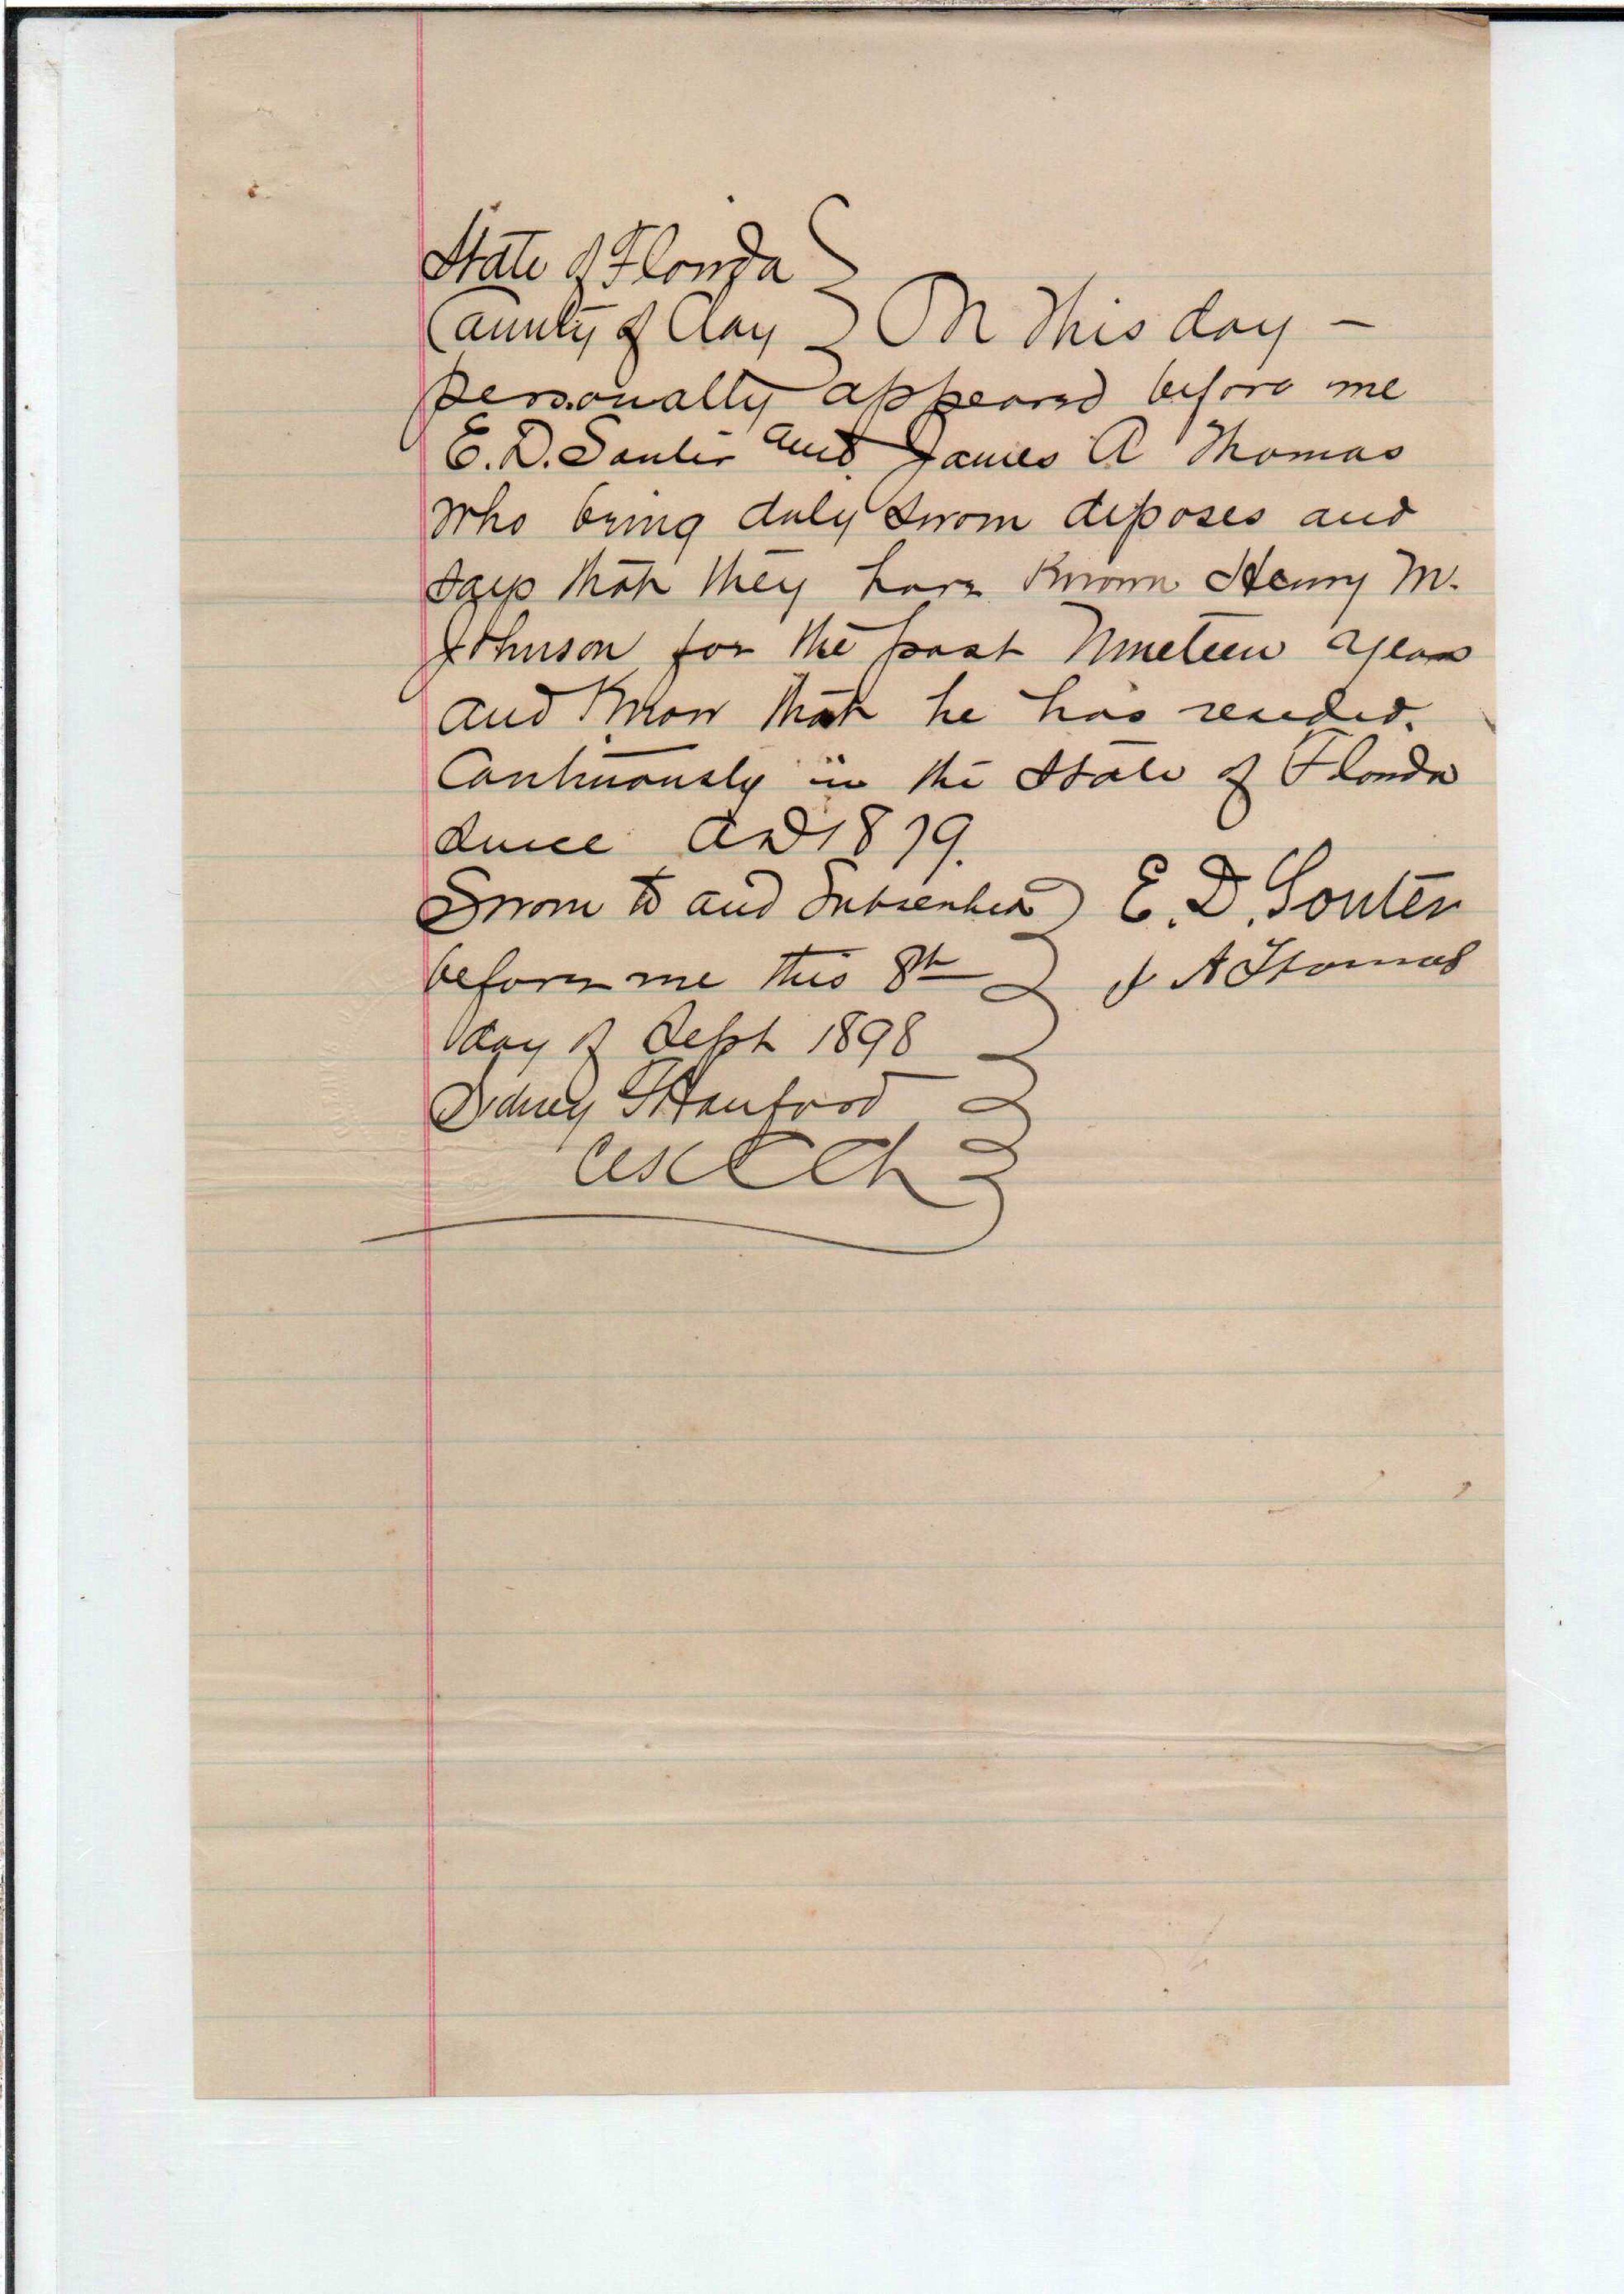 State of Florida
County of Clay } On this day —
personally appeared before me
E. D. Souter and James A Thomas
who being duly sworn deposes and
says that they have known Henry M.
Johnson for the past Nineteen years
and know that he has resided.
Continuously in the State of Florida
since AD 1879.
Sworn to and Subscribed } E. D. Souter
before me this 8th } J A Thomas
day of Sept 1898
Sidney Hanford
Clk C Ct